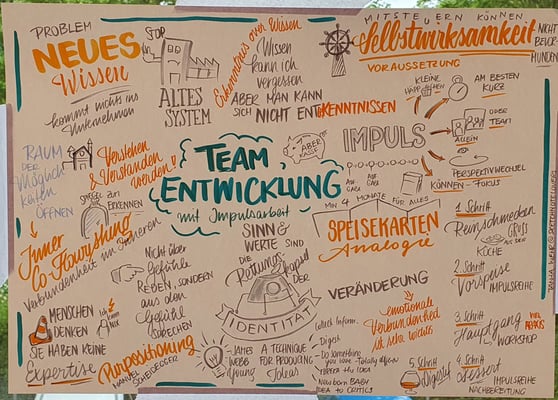 PROBLEM
NEUES
Wissen
kommt nicht ins
Unternehmen
STOP
ALTES
SYSTEM
Erkenntnis over Wissen
Wissen
kann ich
vergessen
ABER MAN KANN
SICH NICHT ENTKENNTNISSEN
MITSTEUERN KÖNNEN
Selbstwirksamkeit
NICHT
VORAUSSETZUNG
RAUM
DER
Möglich
keiten
ÖFFNEN
Verstehen
& Verstanden
werden!
ZUM
ERKENNEN
TEAM
ENTWICKLUNG
mit Impulsarbeit
ABER
IMPULS
KLEINE
AM BESTEN
KURZ
ODER
TEAM
ALLEIN
PERSPEKTIVWECHSEL
KÖNNEN - FOKUS
MIN 4 MONATE FÜR ALLES
SPEISEKARTEN
Analogie
1. Schritt
Reinschmecken
GRUSS
AUS DER
KÜCHE
2. Schritt
Vorspeise
IMPULSREIHE
3. Schritt
Hauptgang
WORKSHOP
4. Schritt
Dessert
IMPULSREIHE
NACHBEREITUNG
5. Schritt
Digestif
Inner
Co-Flowyshing
Verbundenheit im Inneren
SINN &
WERTE SIND
DIE
Rettungs-
IDENTITÄT
Nicht über
Gefühle
REDEN, SONDERN
aus dem
Gefühl
SPRECHEN
VERÄNDERUNG
emotionale
Verbundenheit
ist sehr wichtig
MENSCHEN
DENKEN
SIE HABEN KEINE
Expertise
Purpositioning
MANUEL
JAMES
WEBB
Young
A TECHNIQUE
FOR PRODUCING
Ideas
collect Inform.
Digest
Do Something
New born BABY
IDEA to CRITICS